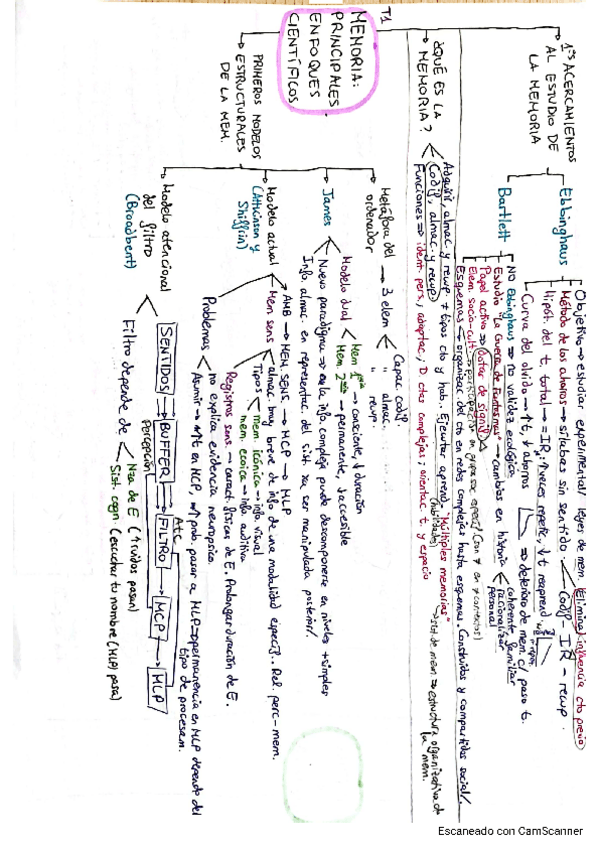 T1
MEMORIA:
PRINCIPALES
ENFOQUES
CIENTÍFICOS
1os ACERCAMIENTOS
AL ESTUDIO DE
LA MEMORIA
Ebbinghaus
Objetivo → estudiar experimental/ leyes de mem. (elimina influencia cto previo
Método de los ahorros → sílabas sin sentido. Codif - IR - recup.
Hipót. del t. total → = IR
Curva del olvido → ↑t, ↓ ahorros ⇒ deterioro de mem. c/ paso t.
Bartlett
No Ebbinghaus → no validez ecológica
Estudia "La Guerra de Fantasmas" → cambios en historia
coherente, familiar
racionalizar
personal
Papel activo ⇒ dotar de signif
Elem. socio-cult
Esquemas → organizac. del cto en redes complejas hasta esquemas. Construidos y compartidos social/
¿QUÉ ES LA
MEMORIA?
Adquirir, almac. y recup. ≠ tipos cto y hab. Ejecutar aprend.
(habilidades)
Codif, almac. y recup
"Múltiples memorias"
→ sist. de mem. ⇒ estructura organizativa de
la mem.
Funciones ⇒ ident. pers, adaptac,; ctas complejas; orientac. t. y espacio
PRIMEROS MODELOS
ESTRUCTURALES
DE LA MEM.
Metáfora del
ordenador
→ 3 elem
Capac codif
" almac.
" recup.
James
Modelo dual
Mem. 1ria → consciente, ↓ duración
Mem. 2ria → permanente, ↓ accesible
Nuevo paradigma → en la info. compleja puede descomponerse en niveles + simples
Info. almac. en representac. del sist. xa ser manipulada posterior/
Modelo actual
(Atkinson y
Shiffrin)
AMB → MEM. SENS → MCP → MLP
Mem. sens
almac. muy breve de info de una modalidad específ.. Rel. perc-mem.
Tipos
mem. icónica → info. visual
mem. ecoica → info auditiva
Registros sens → caract. físicas de E. Prolongar duración de E.
Problemas
no explica evidencia neuropsico.
Asumir → en MCP, ↑ prob. pasar a MLP ⇒ permanencia en MCP depende del
tipo de procesam.
Modelo atencional
del filtro
(Broadbent)
SENTIDOS → BUFFER → FILTRO → MCP → MLP
Percepción
Atc
Filtro depende de
Nza de E (↑ ruidos pasan)
Sist. cogn. (escuchar tu nombre (MLP) pasa)
Escaneado con CamScanner